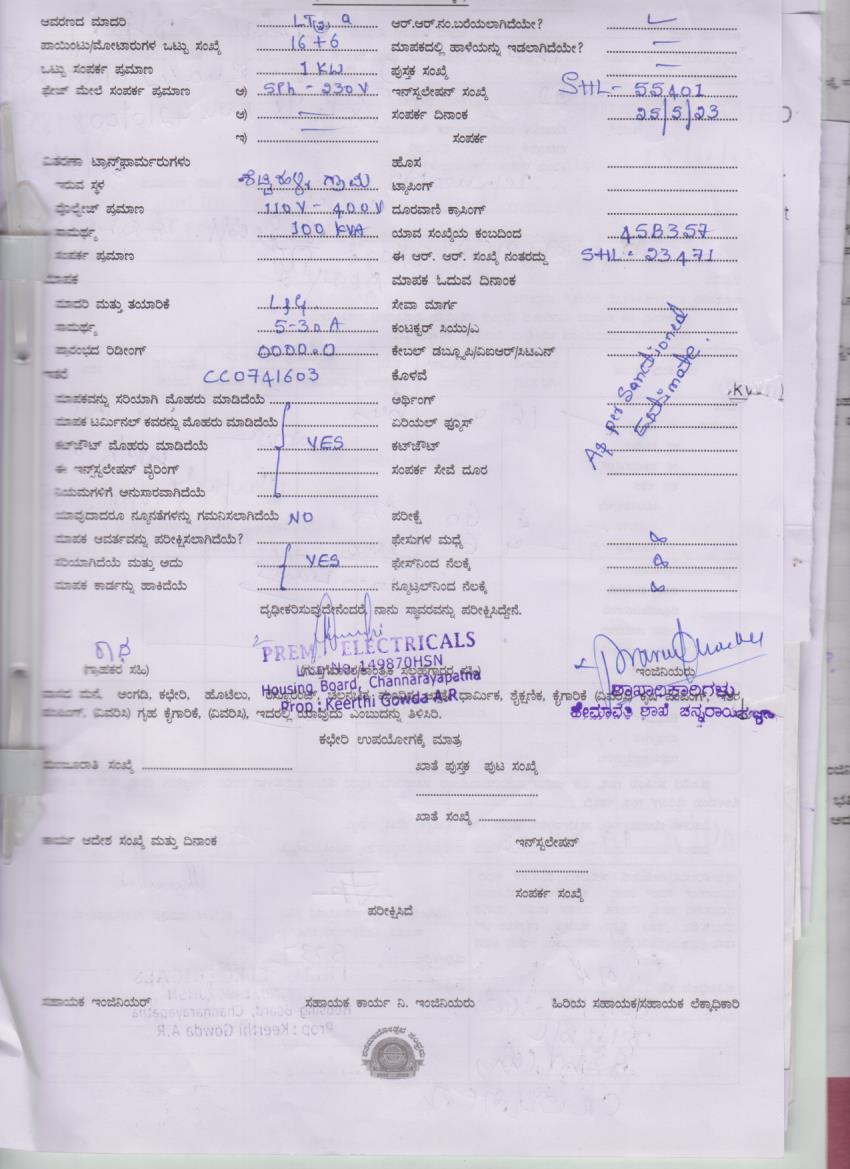 ಆವರಣದ ಮಾದರಿ LT ಆರ್.ಆರ್.ನಂ.ಬರೆಯಲಾಗಿದೆಯೇ?
ಪಾಯಿಂಟು/ಮೋಟಾರುಗಳ ಒಟ್ಟು ಸಂಖ್ಯೆ 16+6 ಮಾಪಕದಲ್ಲಿ ಹಾಳೆಯನ್ನು ಇಡಲಾಗಿದೆಯೇ? —
ಒಟ್ಟು ಸಂಪರ್ಕ ಪ್ರಮಾಣ 1 KW ಪುಸ್ತಕ ಸಂಖ್ಯೆ —
ಫೇಜ್ ಮೇಲೆ ಸಂಪರ್ಕ ಪ್ರಮಾಣ ಅ) SPh - 230V ಇನ್‌ಸ್ಟಲೇಷನ್ ಸಂಖ್ಯೆ SHL- 55401
ಆ) — ಸಂಪರ್ಕ ದಿನಾಂಕ 25/5/23
ಇ) — ಸಂಪರ್ಕ
ವಿತರಣಾ ಟ್ರಾನ್ಸ್‌ಫಾರ್ಮರುಗಳು ಹೊಸ
ಇರುವ ಸ್ಥಳ ಗ್ರಾಮ ಟ್ಯಾಪಿಂಗ್
ವೊಲ್ಟೇಜ್ ಪ್ರಮಾಣ 110V - 400V ದೂರವಾಣಿ ಕ್ರಾಸಿಂಗ್
ಸಾಮರ್ಥ್ಯ 100 KVA ಯಾವ ಸಂಖ್ಯೆಯ ಕಂಬದಿಂದ 458357
ಸಂಪರ್ಕ ಪ್ರಮಾಣ ಈ ಆರ್. ಆರ್. ಸಂಖ್ಯೆ ನಂತರದ್ದು SHL- 23471
ಮಾಪಕ ಮಾಪಕ ಓದುವ ದಿನಾಂಕ
ಮಾದರಿ ಮತ್ತು ತಯಾರಿಕೆ L&G ಸೇವಾ ಮಾರ್ಗ
ಸಾಮರ್ಥ್ಯ 5-30 A ಕಂಟಕ್ಟರ್ ಸಿಯು/ಎ
ಪ್ರಾರಂಭದ ರಿಡೀಂಗ್ 00000.0 ಕೇಬಲ್ ಡಬ್ಲ್ಯೂಪಿ/ವಿಐಆರ್/ಸಿಟಿಎಸ್
ಇತರೆ CC0741603 ಕೊಳವೆ
As per Sanctioned Estimate.
ಮಾಪಕವನ್ನು ಸರಿಯಾಗಿ ಮೊಹರು ಮಾಡಿದೆಯೆ ಆರ್ಥಿಂಗ್
ಮಾಪಕ ಟರ್ಮಿನಲ್ ಕವರನ್ನು ಮೊಹರು ಮಾಡಿದೆಯೆ ಏರಿಯಲ್ ಫ್ಯೂಸ್
ಕಟ್‌ಔಟ್ ಮೊಹರು ಮಾಡಿದೆಯೆ YES ಕಟ್‌ಔಟ್
ಈ ಇನ್ಸ್‌ಸ್ಟಲೇಷನ್ ವೈರಿಂಗ್ ಸಂಪರ್ಕ ಸೇವೆ ದೂರ
ನಿಯಮಗಳಿಗೆ ಅನುಸಾರವಾಗಿದೆಯೆ
ಯಾವುದಾದರೂ ನ್ಯೂನತೆಗಳನ್ನು ಗಮನಿಸಲಾಗಿದೆಯೆ NO ಪರೀಕ್ಷೆ
ಮಾಪಕ ಆವರ್ತವನ್ನು ಪರೀಕ್ಷಿಸಲಾಗಿದೆಯೆ? ಫೇಸುಗಳ ಮಧ್ಯೆ
ಸರಿಯಾಗಿದೆಯೆ ಮತ್ತು ಅದು YES ಫೇಸ್‌ನಿಂದ ನೆಲಕ್ಕೆ
ಮಾಪಕ ಕಾರ್ಡನ್ನು ಹಾಕಿದೆಯೆ ನ್ಯೂಟ್ರಲ್‌ನಿಂದ ನೆಲಕ್ಕೆ
ದೃಢೀಕರಿಸುವುದೇನೆಂದರೆ, ನಾನು ಸ್ಥಾವರವನ್ನು ಪರೀಕ್ಷಿಸಿದ್ದೇನೆ.
PREM ELECTRICALS
(ಗ್ರಾಹಕರ ಸಹಿ) No. 149870HSN ಇಂಜಿನಿಯರು
Housing Board, Channarayapatna ಶಾಖಾಧಿಕಾರಿಗಳು
Prop : Keerthi Gowda A.R ಹೇಮಾವತಿ ಶಾಖೆ
ವಾಸದ ಮನೆ, ಅಂಗಡಿ, ಕಛೇರಿ, ಹೊಟೆಲು, ಧಾರ್ಮಿಕ, ಶೈಕ್ಷಣಿಕ, ಕೈಗಾರಿಕೆ
(ವಿವರಿಸಿ) ಗೃಹ ಕೈಗಾರಿಕೆ, (ವಿವರಿಸಿ), ಇದರಲ್ಲಿ ಯಾವುದು ಎಂಬುದನ್ನು ತಿಳಿಸಿರಿ.
ಕಛೇರಿ ಉಪಯೋಗಕ್ಕೆ ಮಾತ್ರ
ಮಂಜೂರಾತಿ ಸಂಖ್ಯೆ ಖಾತೆ ಪುಸ್ತಕ ಪುಟ ಸಂಖ್ಯೆ
ಖಾತೆ ಸಂಖ್ಯೆ
ಕಾರ್ಯ ಆದೇಶ ಸಂಖ್ಯೆ ಮತ್ತು ದಿನಾಂಕ ಇನ್‌ಸ್ಟಲೇಷನ್
ಸಂಪರ್ಕ ಸಂಖ್ಯೆ
ಪರೀಕ್ಷಿಸಿದೆ
ಸಹಾಯಕ ಇಂಜಿನಿಯರ್ ಸಹಾಯಕ ಕಾರ್ಯ ನಿ. ಇಂಜಿನಿಯರು ಹಿರಿಯ ಸಹಾಯಕ/ಸಹಾಯಕ ಲೆಕ್ಕಾಧಿಕಾರಿ